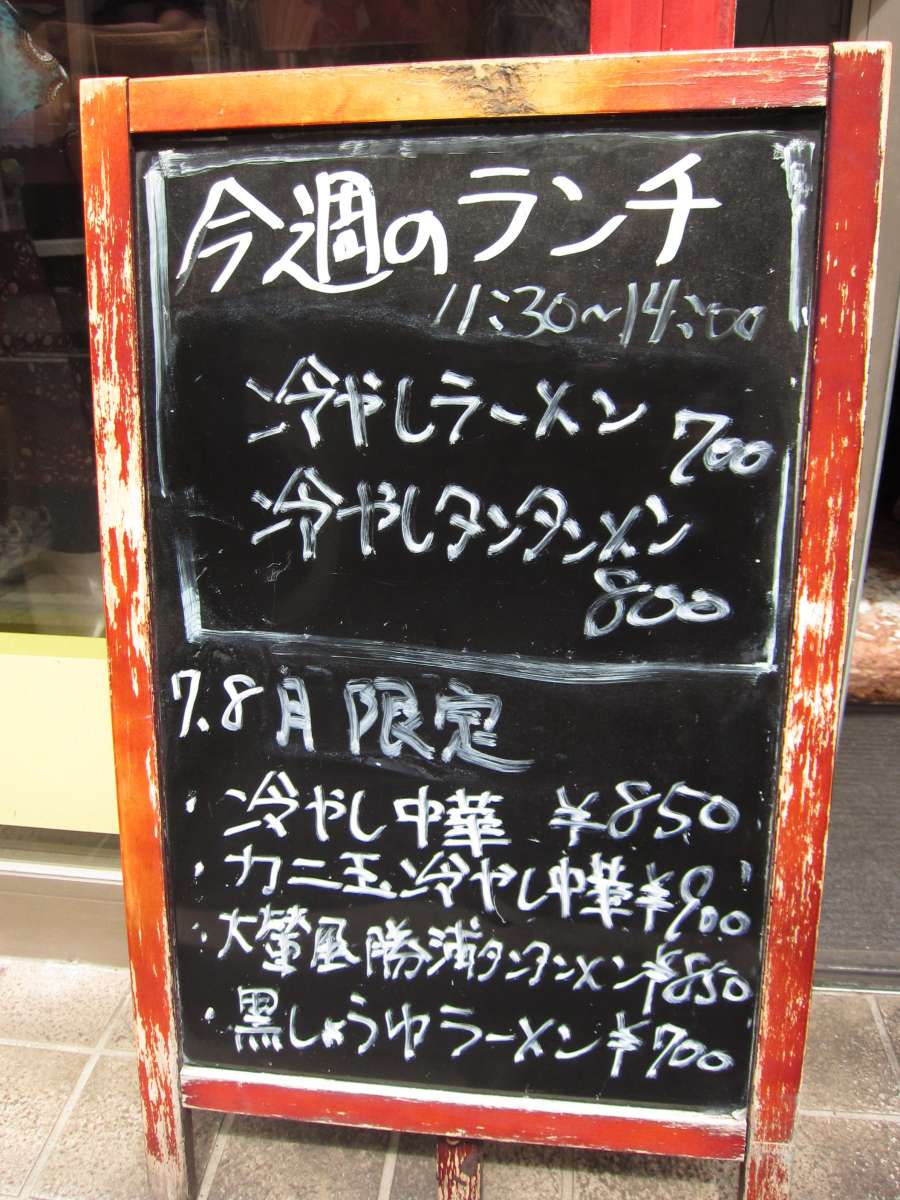 今週のランチ
11:30~14:00
冷やしラーメン
700
冷やしタンタンメン
800
7.8月限定
・冷やし中華 ¥850
・カニ玉冷やし中華¥900
・大螢風勝浦タンタンメン¥850
・黒しょうゆラーメン¥700